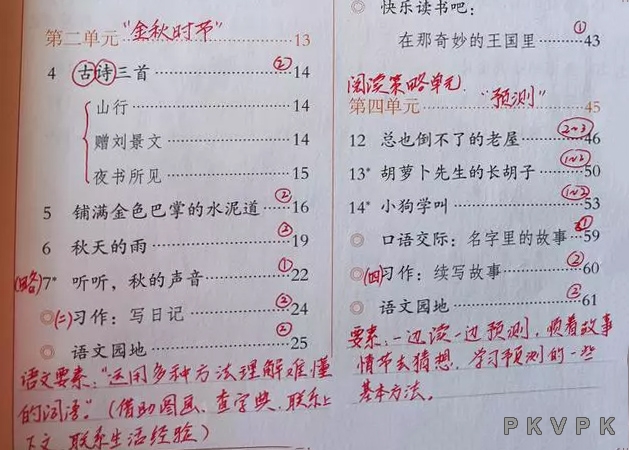 第二单元 "金秋时节" 13
4 古诗三首 ② 14
山行 14
赠刘景文 14
夜书所见 15
5 铺满金色巴掌的水泥道 ② 16
6 秋天的雨 ② 19
(略) 7* 听听，秋的声音 ① 22
(二) 习作：写日记 ② 24
语文园地 ② 25
语文要素："运用多种方法理解难懂
的词语。"(借助图画、查字典、联系上
下文、联系生活经验)
快乐读书吧：
在那奇妙的王国里 ① 43
阅读策略单元
第四单元 "预测" 45
12 总也倒不了的老屋 2~3 46
13* 胡萝卜先生的长胡子 1~2 50
14* 小狗学叫 1~2 53
口语交际：名字里的故事 ① 59
(四) 习作：续写故事 ② 60
语文园地 ② 61
要素：一边读一边预测，顺着故事
情节去猜想。学习预测的一些
基本方法。
PKVPK